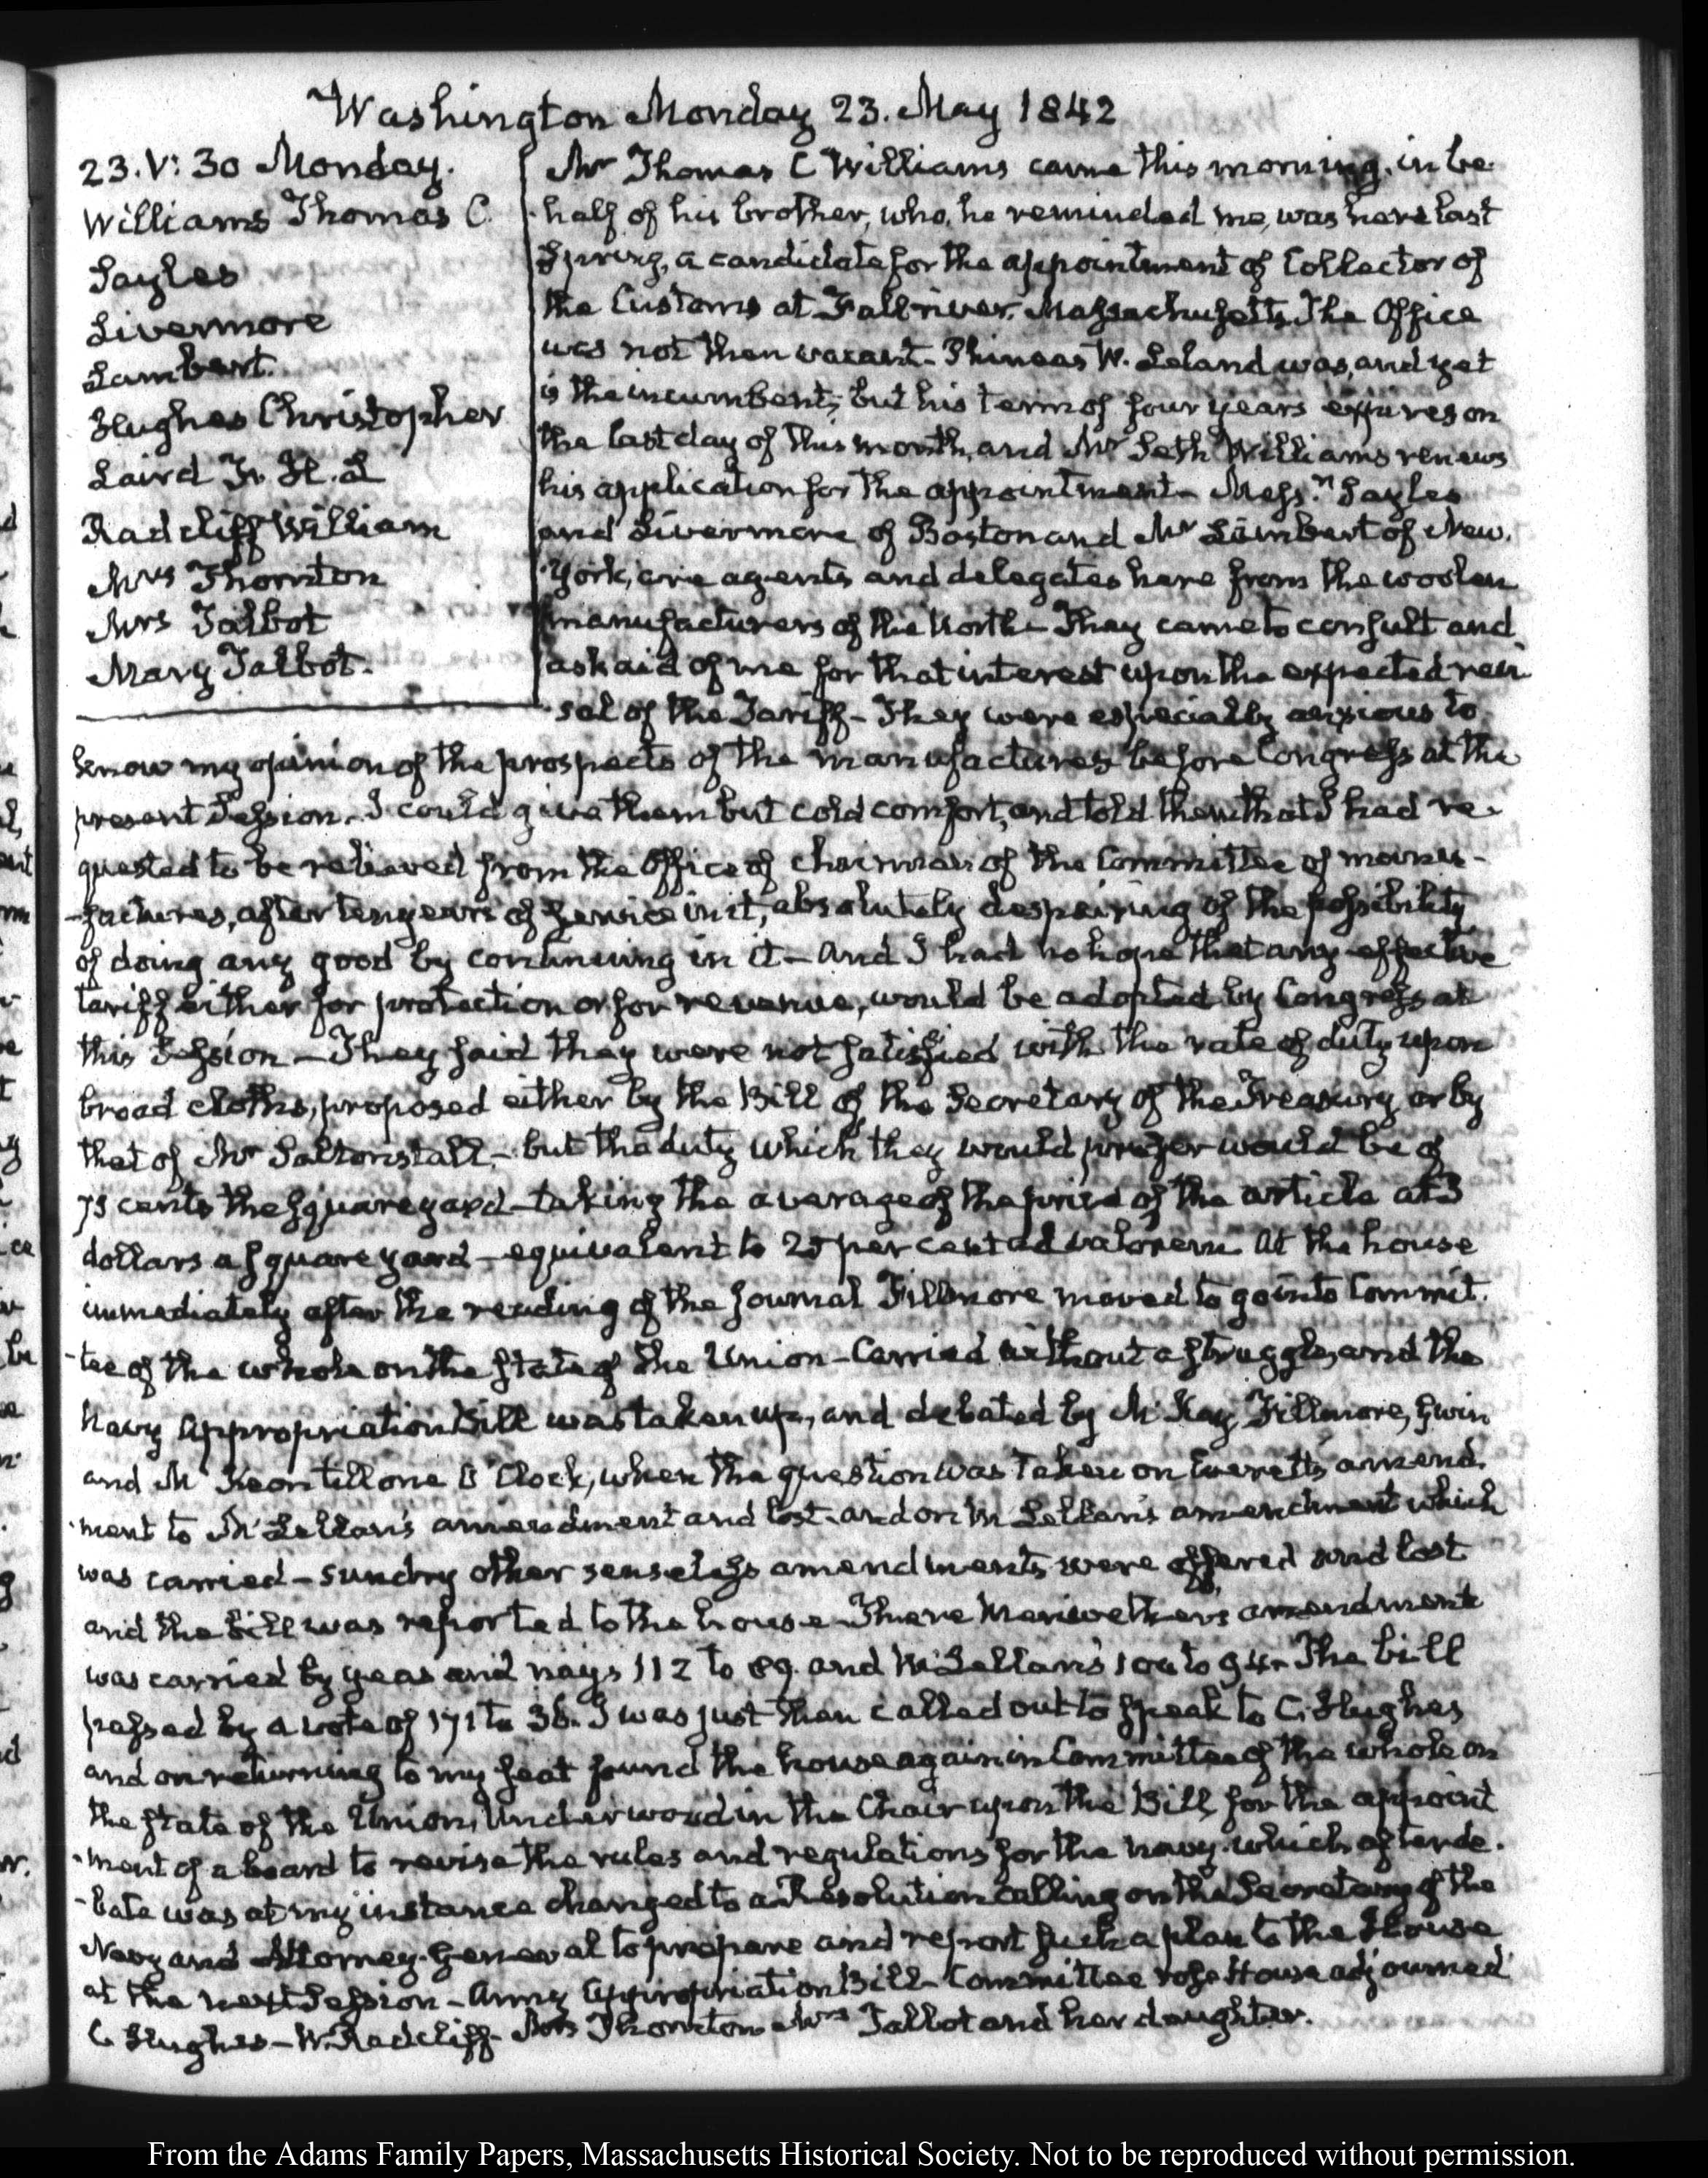 Washington Monday 23. May 1842
23. V: 30 Monday.
Williams Thomas C.
Sayles
Livermore
Lambert.
Hughes Christopher
Laird F. H. L
Radcliff William
Mrs Thornton
Mrs Talbot
Mary Talbot.
Mr Thomas C Williams came this morning, in be-
-half of his brother, who, he reminded me, was here last
Spring, a candidate for the appointment of Collector of
the Customs at Fallriver, Massachusetts, The Office
was not then vacant- Phineas W. Leland was, and yet
is the incumbent; but his term of four years expires on
the last day of this month, and Mr Seth Williams renews
his application for the appointment- Messrs Sayles
and Livermore of Boston and Mr Lambert of New-
York, are agents and delegates here from the woolen
manufacturers of the North- They came to consult and
ask aid of me for that interest upon the expected revi-
-sal of the Tariff- They were especially anxious to
know my opinion of the prospects of the manufactures before Congress at the
present Session. I could give them but cold comfort, and told them that I had re-
quested to be relieved from the Office of chairman of the Committee of manu-
-factures, after ten years of service in it, absolutely despairing of the possibility
of doing any good by continuing in it- and I had no hope that any effective
tariff either for protection or for revenue, would be adopted by Congress at
this Session- They said they were not satisfied with the rate of duty upon
broad cloths, proposed either by the Bill of the Secretary of the Treasury or by
that of Mr Saltonstall- but the duty which they would prefer would be of
75 cents the square yard- taking the average of the price of the article at 3
dollars a square yard- equivalent to 25 per cent ad valorem. At the house
immediately after the reading of the journal Fillmore moved to go into Commit-
-tee of the whole on the state of the Union- Carried without a struggle, and the
Navy Appropriation Bill was taken up, and debated by McKay, Fillmore, Gwin
and McKeon till one O'Clock, when the question was taken on Everett's amend-
-ment to McLellan's amendment and lost- and on McLellan's amendment which
was carried- sundry other senseless amendments were offered and lost
and the bill was reported to the house- There Meriwether's amendment
was carried by yeas and nays 112 to 89. and McLellan's 104 to 94- The bill
passed by a vote of 171 to 36. I was just then called out to speak to C. Hughes
and on returning to my seat found the house again in Committee of the whole on
the state of the Union, Underwood in the Chair upon the Bill, for the appoint
-ment of a board to revise the rules and regulations for the navy, which after de-
-bate was at my instance changed to a Resolution calling on the Secretary of the
Navy and Attorney-General to prepare and report such a plan to the House
at the next Session- Army Appropriation Bill- Committee rose House adjourned
C Hughes- W. Radcliff- Mrs Thornton Mrs Talbot and her daughter.
From the Adams Family Papers, Massachusetts Historical Society. Not to be reproduced without permission.